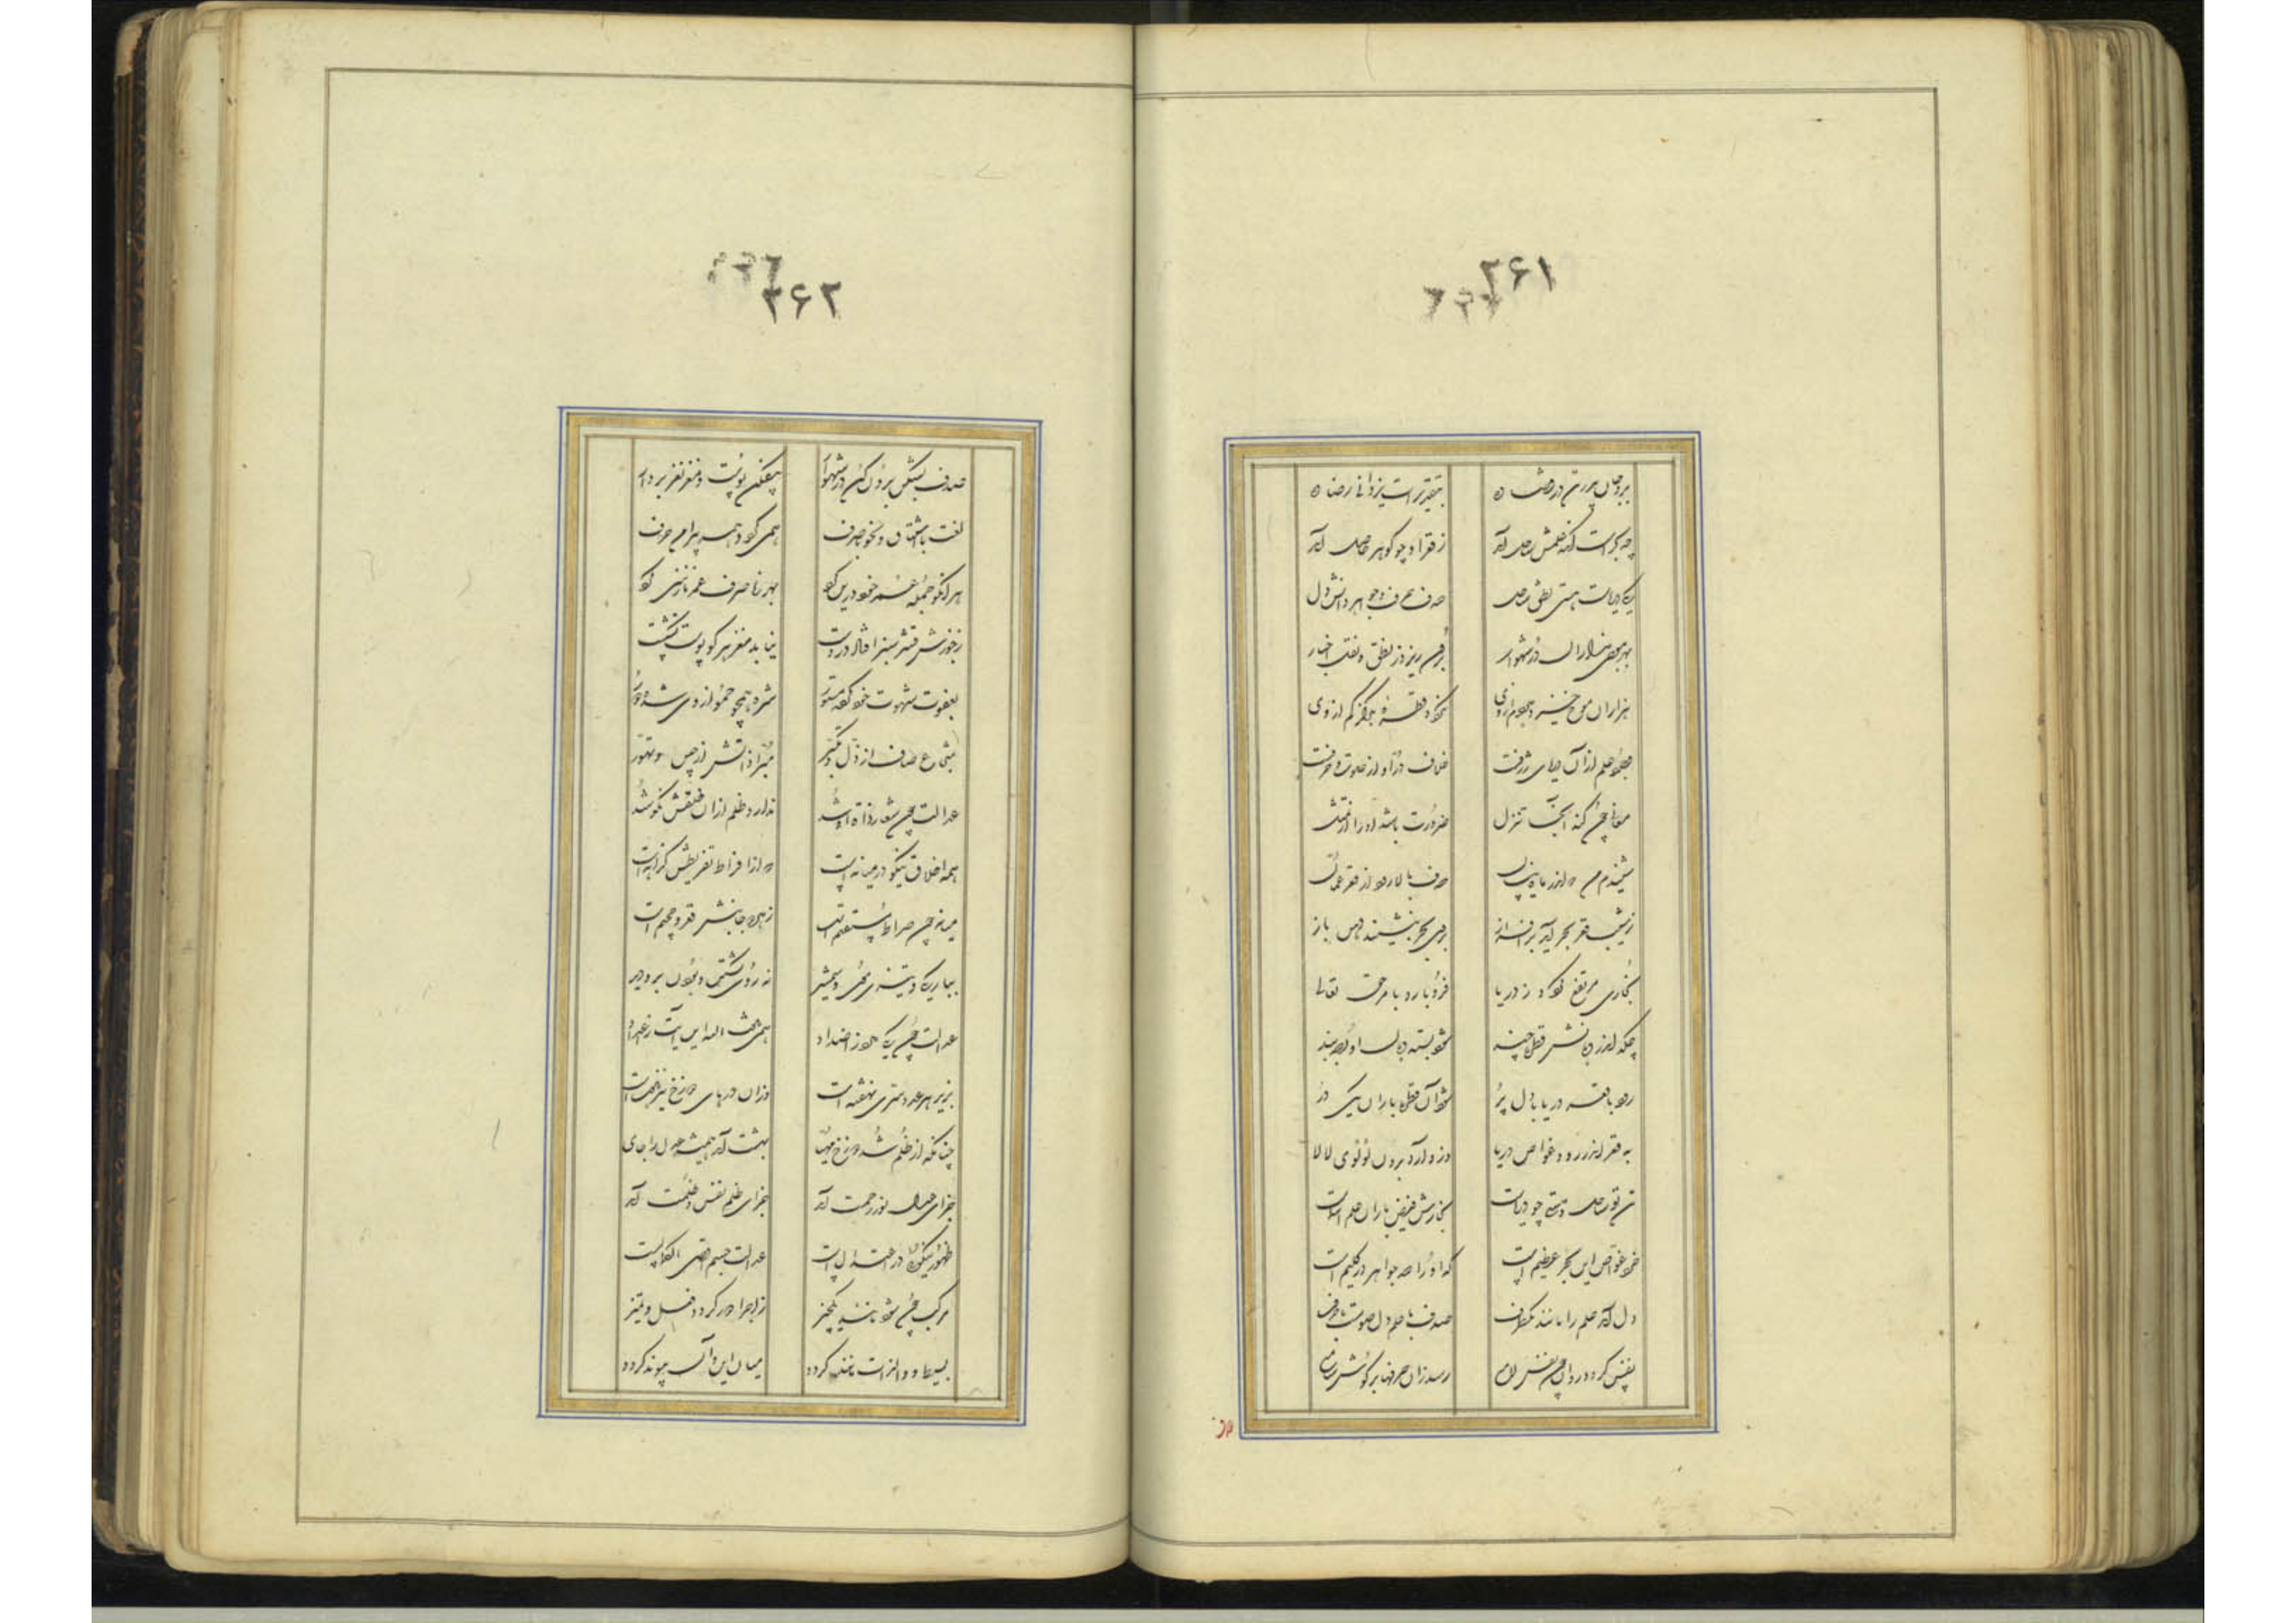 ۲۶۱
برو جان پدر تن در قضا ده بتقدیرات یزدانی رضا ده
چه بحر است آنکه علمش ساحل آمد ز قعر او چه گوهر حاصل آمد
یکی دریاست هستی نطق ساحل صدف حرف و جواهر دانش دل
بهر موجی هزاران در شهوار برون ریزد ز نطق و نقل اخبار
هزاران موج خیزد هر دم از وی نگردد قطره هرگز کم از وی
وجود علم از آن دریای ژرفست غلاف در او از صوت و حرفست
معانی چون کند اینجا تنزل ضرورت باشد او را از تمثل
شنیدم من که اندر ماه نیسان صدف بالا رود از قعر عمان
ز شیب قعر بحر آید بر افراز بروی بحر بنشیند دهن باز
بخاری مرتفع گردد ز دریا فرو بارد بامر حق تعالی
چکد اندر دهانش قطره چند شود بسته دهان او بصد بند
رود با قعر دریا با دل پُر شود آن قطره باران یکی در
به قعر اندر رود غواص دریا وزو آرد برون لؤلؤی لالا
تن تو ساحل و هستی چو دریاست بخارش فیض باران علم اسماست
خرد غواص این بحر عظیم است که او را صد جواهر در گلیم است
دل آمد علم را مانند یکظرف صدف با علم دل صوتست با حرف
نفس گردد روان چون برق لامع رسد زان حرفها بر گوش سامع
صدف
۲۶۲
صدف بشکن برون کن در شهوار بیفکن پوست و مغز نغز بردار
لغت با اشتقاق و نحو با صرف همی گردد همه پیرامن حرف
هر آنکو جمله عمر خود درین کرد بهرزه صرف عمر نازنین کرد
ز جوزش قشر سبز افتاد در دست نیابد مغز هر کو پوست نشکست
بعفت شهوت خود کرده مستور شره همچو خمود از وی شده دور
شجاع صاف از ذل و تکبر مبرا ذاتش از جبن و تهور
عدالت چون شعار ذات او شد ندارد ظلم از آن خلقش نکو شد
همه اخلاق نیکو در میانه است که از افراط و تفریطش کرانه است
میانه چون صراط مستقیم است ز هر دو جانبش قعر جحیم است
بباریکی و تیزی موی و شمشیر نه روی گشتن و بودن برو دیر
عدالت چون یکی دارد ز اضداد همی هشت آمد این آیت ز اعداد
بزیر هر عدد سری نهفته است وزان درهای دوزخ نیز هفت است
چنانکه از ظلم شد دوزخ مهیا بهشت آمد همیشه عدل را جای
جزای عدل نور و رحمت آمد جزای ظلم نفس و ظلمت آمد
ظهور نیکوئی در اعتدال است عدالت جسم را اقصی الکمالست
مرکب چون شود مانند یکچیز ز اجزا دور گردد فعل و تمییز
بسیط و ذات را مانند گردد میان این و آن پیوند گردد